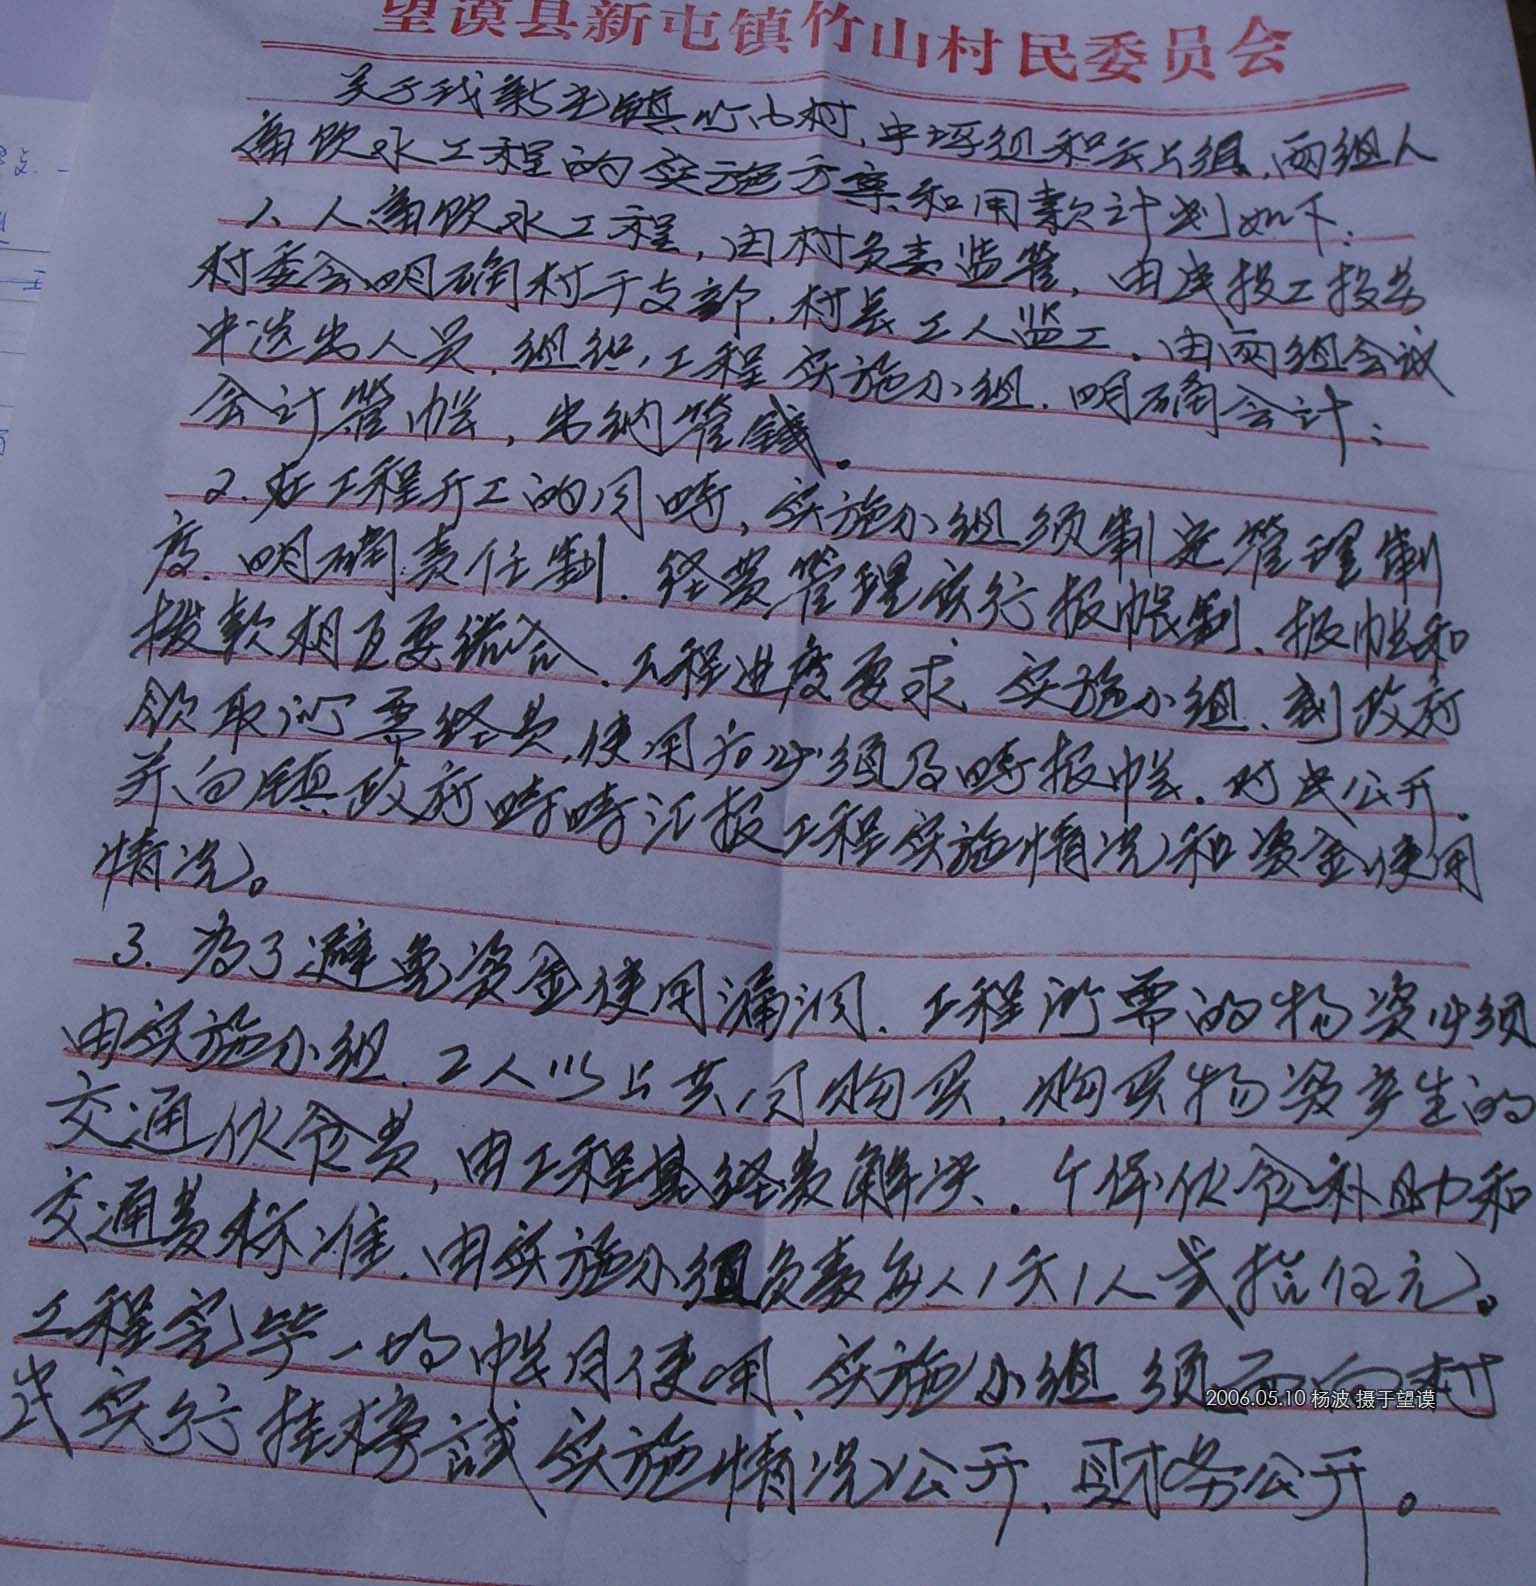 望谟县新屯镇竹山村民委员会
关于我新屯镇竹山村,中坪组和云上组,两组人
畜饮水工程的实施方案和用款计划如下:
1、人畜饮水工程,由村负责监管,由民投工投劳
村委会明确村干支部,村长工人监工,由两组会议
中选出人员,组织工程实施小组,明确会计:
会计管帐,出纳管钱。
2.在工程开工的同时,实施小组须制定管理制
度,明确责任制,经费管理实行报帐制、报帐和
拨款相互要结合,工程进度要求,实施小组,到政府
领取所需经费,使用后必须及时报帐,对民公开.
并向镇政府时时汇报工程实施情况和资金使用
情况。
3.为了避免资金使用漏洞.工程所需的物资必须
由实施小组,2人以上共同购买,购买物资产生的
交通伙食费,由工程其经费解决.个体伙食补助和
交通费标准,由实施小组负责每人1天1人贰拾伍元。
工程完毕一切帐目使用,实施小组须面向村
民实行挂榜试实施情况公开,财务公开。
2006.05.10 杨波 摄于望谟